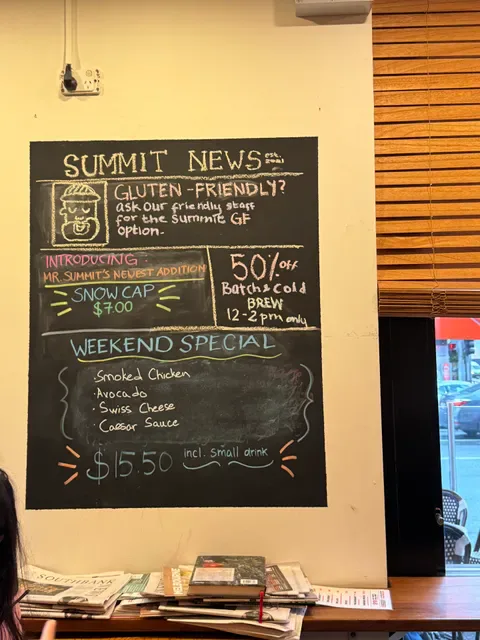 SUMMIT NEWS est. 2021
GLUTEN-FRIENDLY?
ask our friendly staff
for the summit GF
option.
INTRODUCING:
MR. SUMMIT'S NEWEST ADDITION
SNOW CAP
$7.00
50% off
Batch & Cold
BREW
12-2pm only
WEEKEND SPECIAL
· Smoked Chicken
· Avocado
· Swiss Cheese
· Caesar Sauce
$15.50 incl. small drink
SOUTHBANK